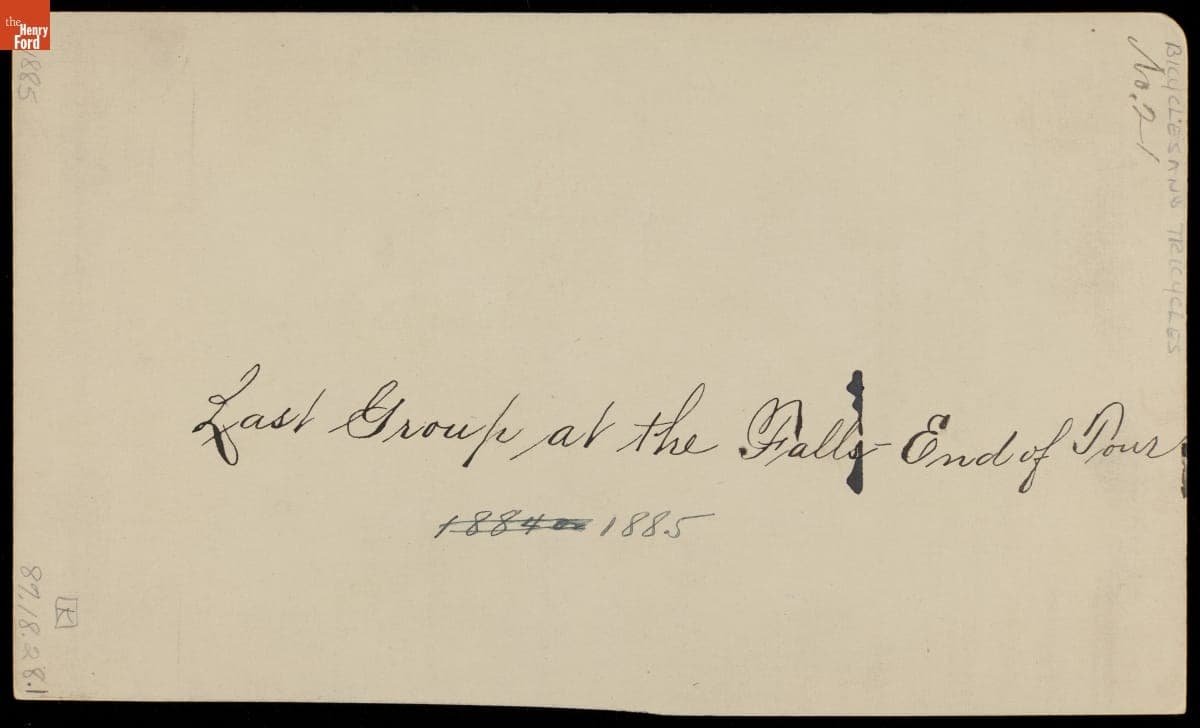 the
Henry
Ford
1885
BICYCLES AND TRICYCLES
No. 21
Last Group at the Falls - End of Tour
1884 or 1885
87.18.28.1
K